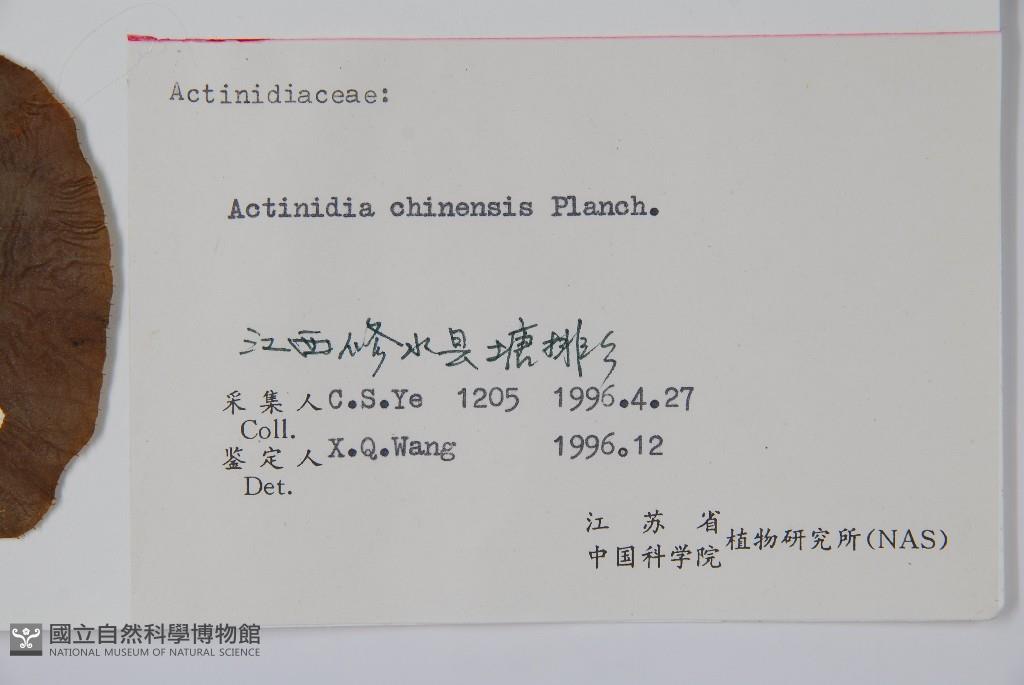 Actinidiaceae:
Actinidia chinensis Planch.
江西修水县塘排乡
采集人 C.S.Ye 1205 1996.4.27
Coll.
鉴定人 X.Q.Wang 1996.12
Det.
江苏省
中国科学院 植物研究所(NAS)
國立自然科學博物館
NATIONAL MUSEUM OF NATURAL SCIENCE